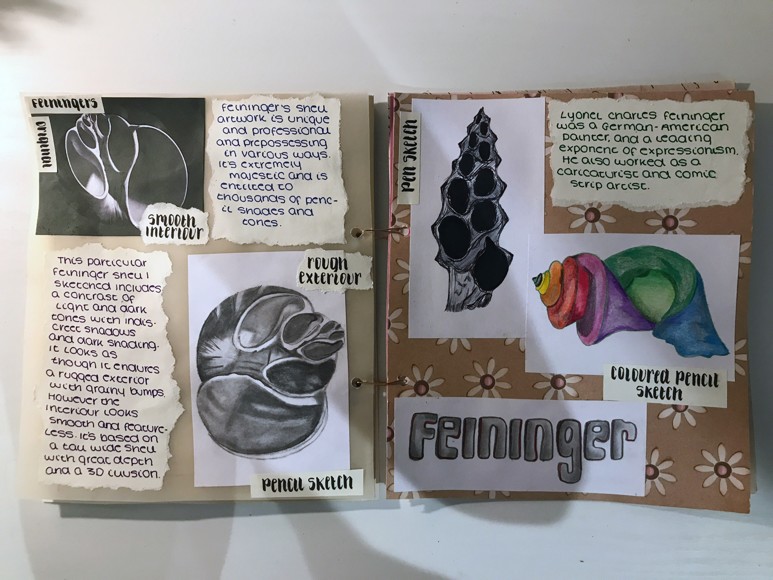 Feiningers
original
smooth
interiour
Feininger's shell
artwork is unique
and professional
and prepossessing
in various ways.
It's extremely
majestic and is
entitled to
thousands of penc-
il shades and
tones.
This particular
Feininger shell I
sketched includes
a contrast of
light and dark
tones with indis-
creet shadows
and dark shading.
It looks as
though it endures
a rugged exterior
with grainy bumps.
However the
interiour looks
smooth and feature-
less. It's based on
a tall wide shell
with great depth
and a 3D illusion
rough
exteriour
pencil sketch
pen sketch
Lyonel Charles Feininger
was a German-American
painter, and a leading
exponent of expressionism.
He also worked as a
caricaturist and comic
strip artist.
coloured pencil
sketch
Feininger